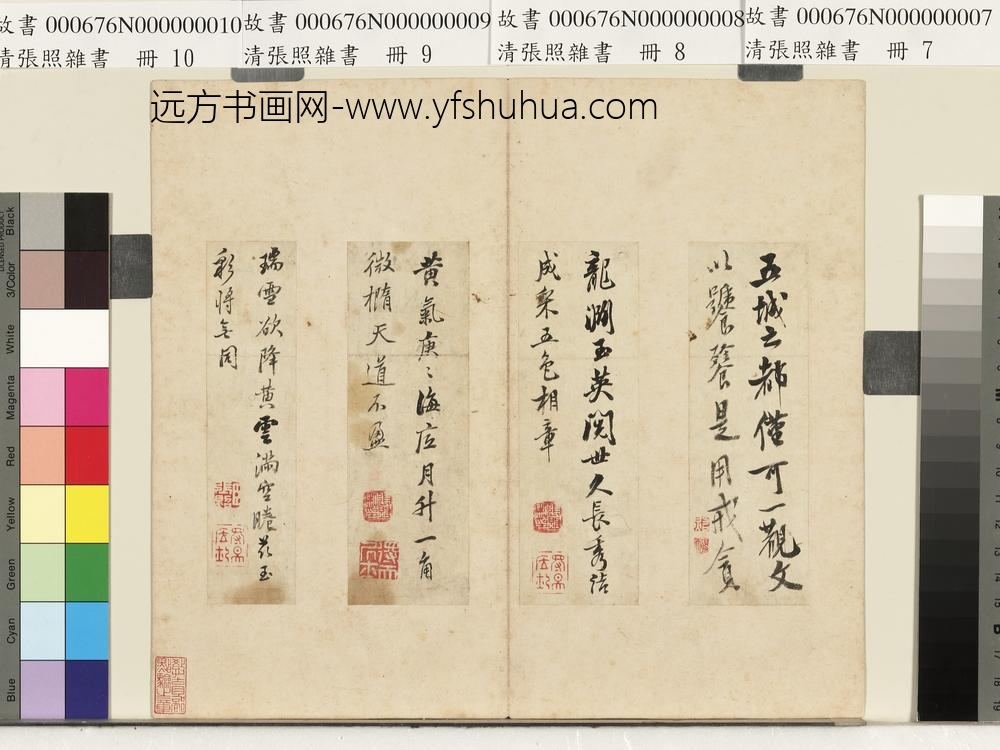 故書 000676N000000010
清張照雜書 冊 10
故書 000676N000000009
清張照雜書 冊 9
故書 000676N000000008
清張照雜書 冊 8
故書 000676N000000007
清張照雜書 冊 7
远方书画网-www.yfshuhua.com
五城之都僅可一觀文
以饕餮是用戒貪
龍淵玉英閱世久長秀結
成采五色相章
黃氣庚〻海底月升一角
微橢天道不盈
瑞雪欲降黄雲滿空勝花玉
彩將無同
Black
3/Color
White
Magenta
Red
Yellow
Green
Cyan
Blue